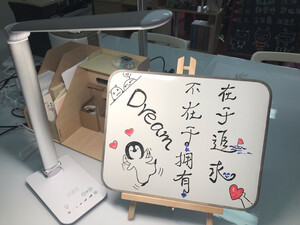 Dream
在于追求
不在于拥有